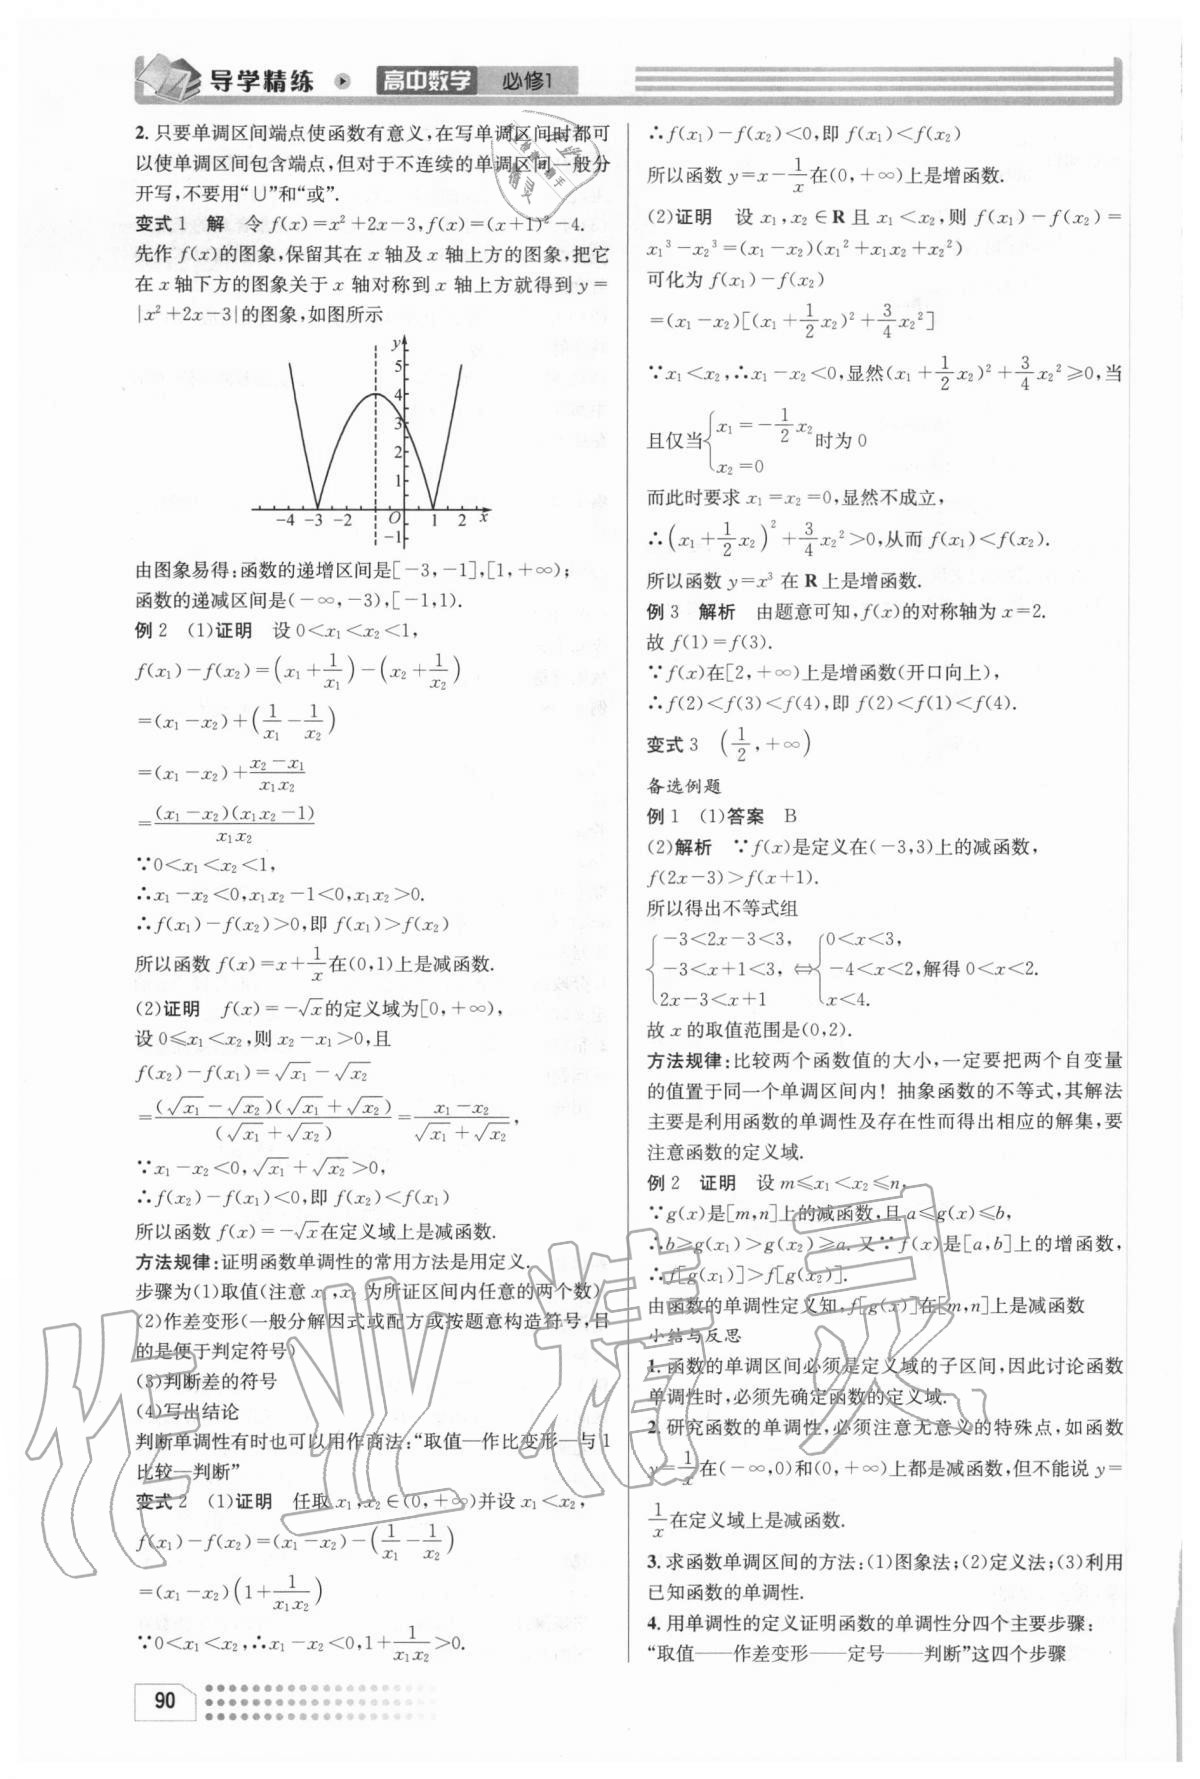 导学精练 高中数学 必修1
2. 只要单调区间端点使函数有意义,在写单调区间时都可
以使单调区间包含端点,但对于不连续的单调区间一般分
开写,不要用“∪”和“或”.
变式1 解 令 f(x)=x²+2x-3,f(x)=(x+1)²-4.
先作 f(x)的图象,保留其在 x 轴及 x 轴上方的图象,把它
在 x 轴下方的图象关于 x 轴对称到 x 轴上方就得到 y=
|x²+2x-3|的图象,如图所示
y
5
4
3
2
1
-4 -3 -2 O 1 2 x
-1
由图象易得:函数的递增区间是[-3,-1],[1,+∞);
函数的递减区间是(-∞,-3),[-1,1).
例2 (1)证明 设 0<x₁<x₂<1,
f(x₁)-f(x₂)=(x₁+1/x₁)-(x₂+1/x₂)
=(x₁-x₂)+(1/x₁-1/x₂)
=(x₁-x₂)+(x₂-x₁)/(x₁x₂)
=(x₁-x₂)(x₁x₂-1)/(x₁x₂)
∵0<x₁<x₂<1,
∴x₁-x₂<0,x₁x₂-1<0,x₁x₂>0.
∴f(x₁)-f(x₂)>0,即 f(x₁)>f(x₂)
所以函数 f(x)=x+1/x在(0,1)上是减函数.
(2)证明 f(x)=-√x的定义域为[0,+∞),
设 0≤x₁<x₂,则 x₂-x₁>0,且
f(x₂)-f(x₁)=√x₁-√x₂
=(√x₁-√x₂)(√x₁+√x₂)/(√x₁+√x₂)=(x₁-x₂)/(√x₁+√x₂),
∵x₁-x₂<0,√x₁+√x₂>0,
∴f(x₂)-f(x₁)<0,即 f(x₂)<f(x₁)
所以函数 f(x)=-√x在定义域上是减函数.
方法规律:证明函数单调性的常用方法是用定义.
步骤为(1)取值(注意 x₁,x₂ 为所证区间内任意的两个数)
(2)作差变形(一般分解因式或配方或按题意构造符号,目
的是便于判定符号)
(3)判断差的符号
(4)写出结论
判断单调性有时也可以用作商法:“取值—作比变形—与1
比较—判断”
变式2 (1)证明 任取 x₁,x₂∈(0,+∞)并设 x₁<x₂,
f(x₁)-f(x₂)=(x₁-x₂)-(1/x₁-1/x₂)
=(x₁-x₂)(1+1/(x₁x₂))
∵0<x₁<x₂,∴x₁-x₂<0,1+1/(x₁x₂)>0.
90
∴f(x₁)-f(x₂)<0,即 f(x₁)<f(x₂)
所以函数 y=x-1/x在(0,+∞)上是增函数.
(2)证明 设 x₁,x₂∈R且 x₁<x₂,则 f(x₁)-f(x₂)=
x₁³-x₂³=(x₁-x₂)(x₁²+x₁x₂+x₂²)
可化为 f(x₁)-f(x₂)
=(x₁-x₂)[(x₁+1/2x₂)²+3/4x₂²]
∵x₁<x₂,∴x₁-x₂<0,显然(x₁+1/2x₂)²+3/4x₂²≥0,当
且仅当{x₁=-1/2x₂ x₂=0 时为0
而此时要求 x₁=x₂=0,显然不成立,
∴(x₁+1/2x₂)²+3/4x₂²>0,从而 f(x₁)<f(x₂).
所以函数 y=x³ 在 R 上是增函数.
例3 解析 由题意可知,f(x)的对称轴为 x=2.
故 f(1)=f(3).
∵f(x)在[2,+∞)上是增函数(开口向上),
∴f(2)<f(3)<f(4),即 f(2)<f(1)<f(4).
变式3 (1/2,+∞)
备选例题
例1 (1)答案 B
(2)解析 ∵f(x)是定义在(-3,3)上的减函数,
f(2x-3)>f(x+1).
所以得出不等式组
{-3<2x-3<3, {0<x<3,
-3<x+1<3, ⇔ -4<x<2,解得 0<x<2.
2x-3<x+1 x<4.
故 x 的取值范围是(0,2).
方法规律:比较两个函数值的大小,一定要把两个自变量
的值置于同一个单调区间内! 抽象函数的不等式,其解法
主要是利用函数的单调性及存在性而得出相应的解集,要
注意函数的定义域.
例2 证明 设 m≤x₁<x₂≤n,
∵g(x)是[m,n]上的减函数,且 a≤g(x)≤b,
∴b≥g(x₁)>g(x₂)≥a. 又∵f(x)是[a,b]上的增函数,
∴f[g(x₁)]>f[g(x₂)].
由函数的单调性定义知,f[g(x)]在[m,n]上是减函数
小结与反思
1. 函数的单调区间必须是定义域的子区间,因此讨论函数
单调性时,必须先确定函数的定义域.
2. 研究函数的单调性,必须注意无意义的特殊点,如函数
y=1/x在(-∞,0)和(0,+∞)上都是减函数,但不能说 y=
1/x在定义域上是减函数.
3. 求函数单调区间的方法:(1)图象法;(2)定义法;(3)利用
已知函数的单调性.
4. 用单调性的定义证明函数的单调性分四个主要步骤:
“取值——作差变形——定号——判断”这四个步骤
作业精灵